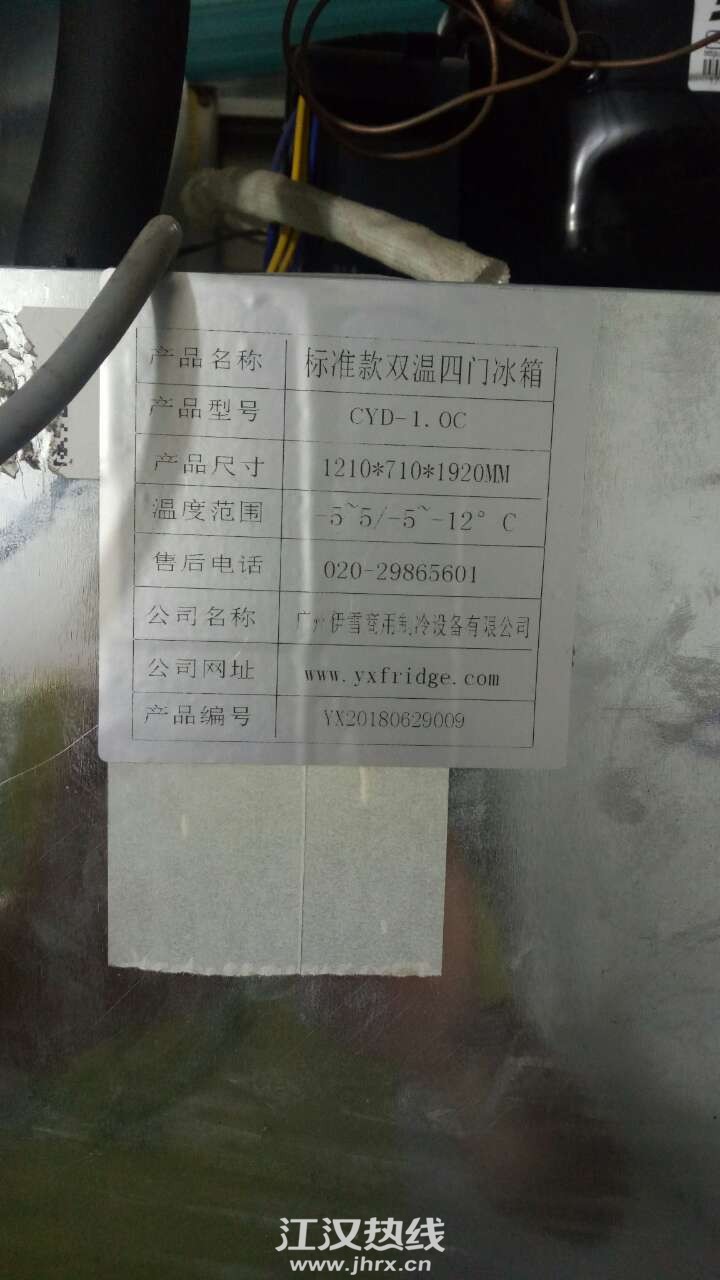 产品名称 标准款双温四门冰箱
产品型号 CYD-1.0C
产品尺寸 1210*710*1920MM
温度范围 -5~5/-5~-12° C
售后电话 020-29865601
公司名称 广州伊雪商用制冷设备有限公司
公司网址 www.yxfridge.com
产品编号 YX20180629009
江汉热线
www.jhrx.cn